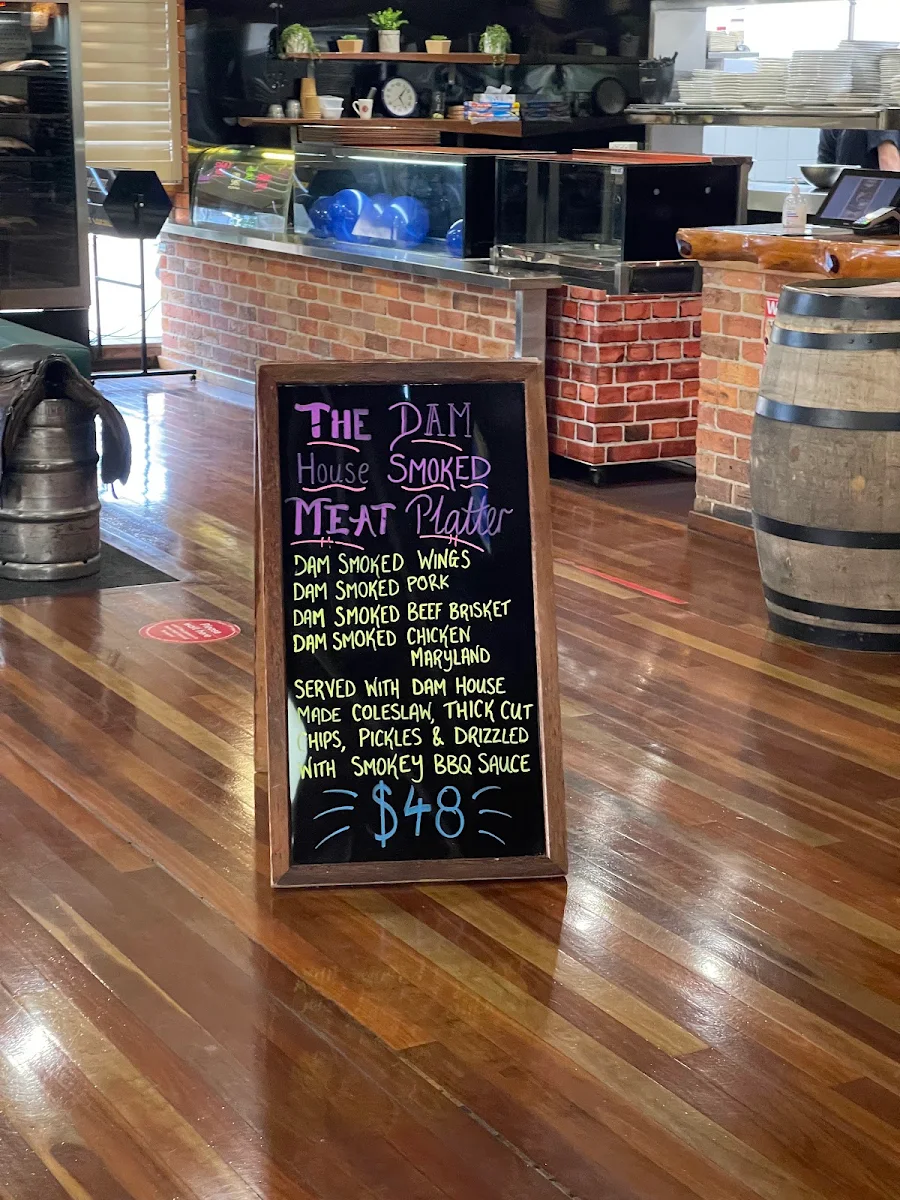 THE DAM
House SMOKED
MEAT Platter
DAM SMOKED WINGS
DAM SMOKED PORK
DAM SMOKED BEEF BRISKET
DAM SMOKED CHICKEN
MARYLAND
SERVED WITH DAM HOUSE
MADE COLESLAW, THICK CUT
CHIPS, PICKLES & DRIZZLED
WITH SMOKEY BBQ SAUCE
$48